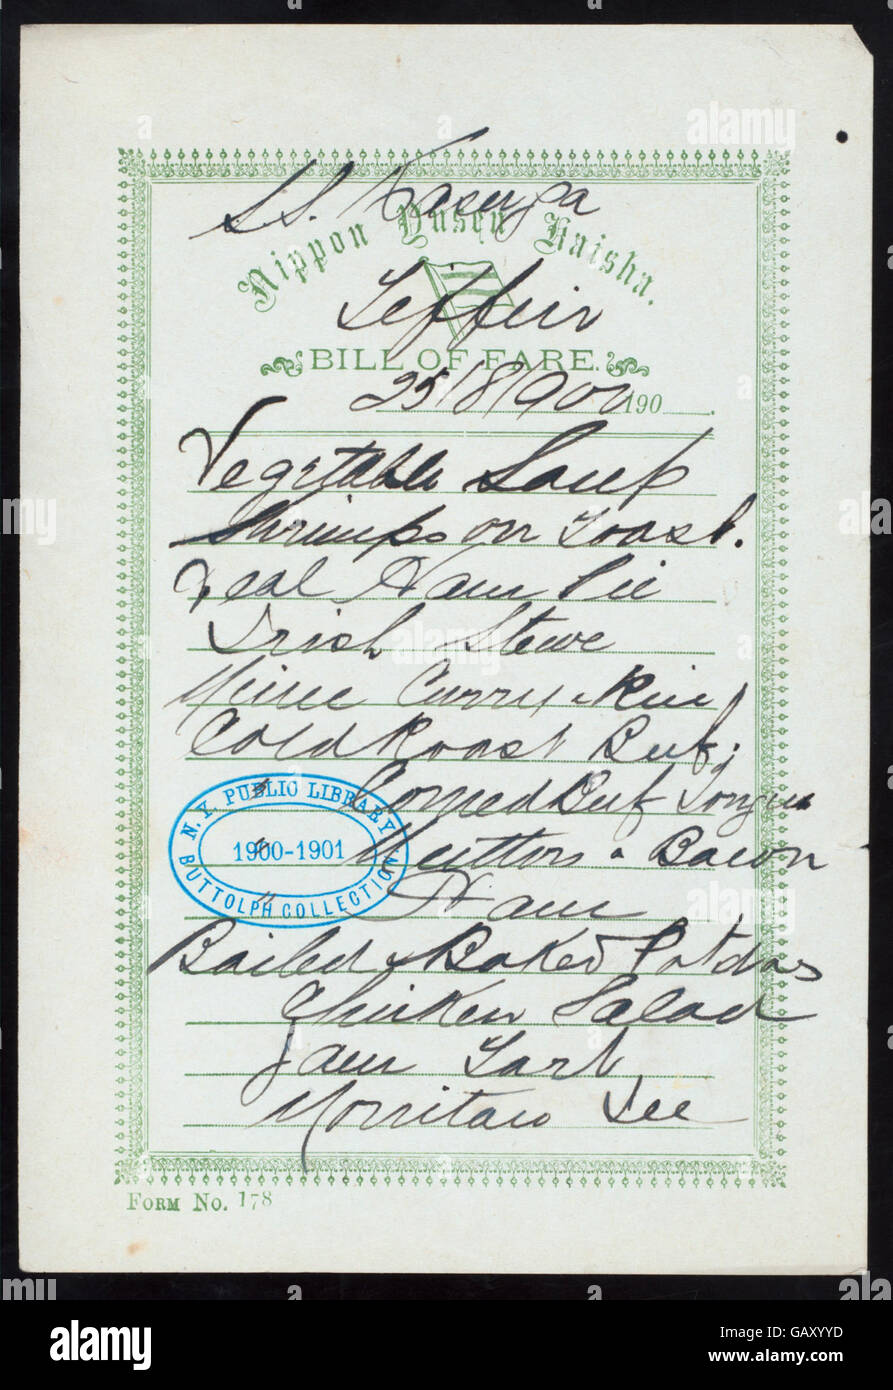 S.S. Kasuga
Nippon Yusen Kaisha.
Tiffein
BILL OF FARE.
25/8/900 190
Vegetable Soup
Shrimps on Toast.
Veal Ham Pie
Irish Stewe
Mince Curry & Rice
Cold Roast Beef;
" Corned Beef Tongue
" Mutton & Bacon
" Ham
Boiled & Baked Potatoes
Chicken Salad
Jam Tart
Ice
N.Y. PUBLIC LIBRARY
1900-1901
BUTTOLPH COLLECTION
FORM NO. 178
alamy
alamy stock photo
Image ID: GAXYYD
www.alamy.com